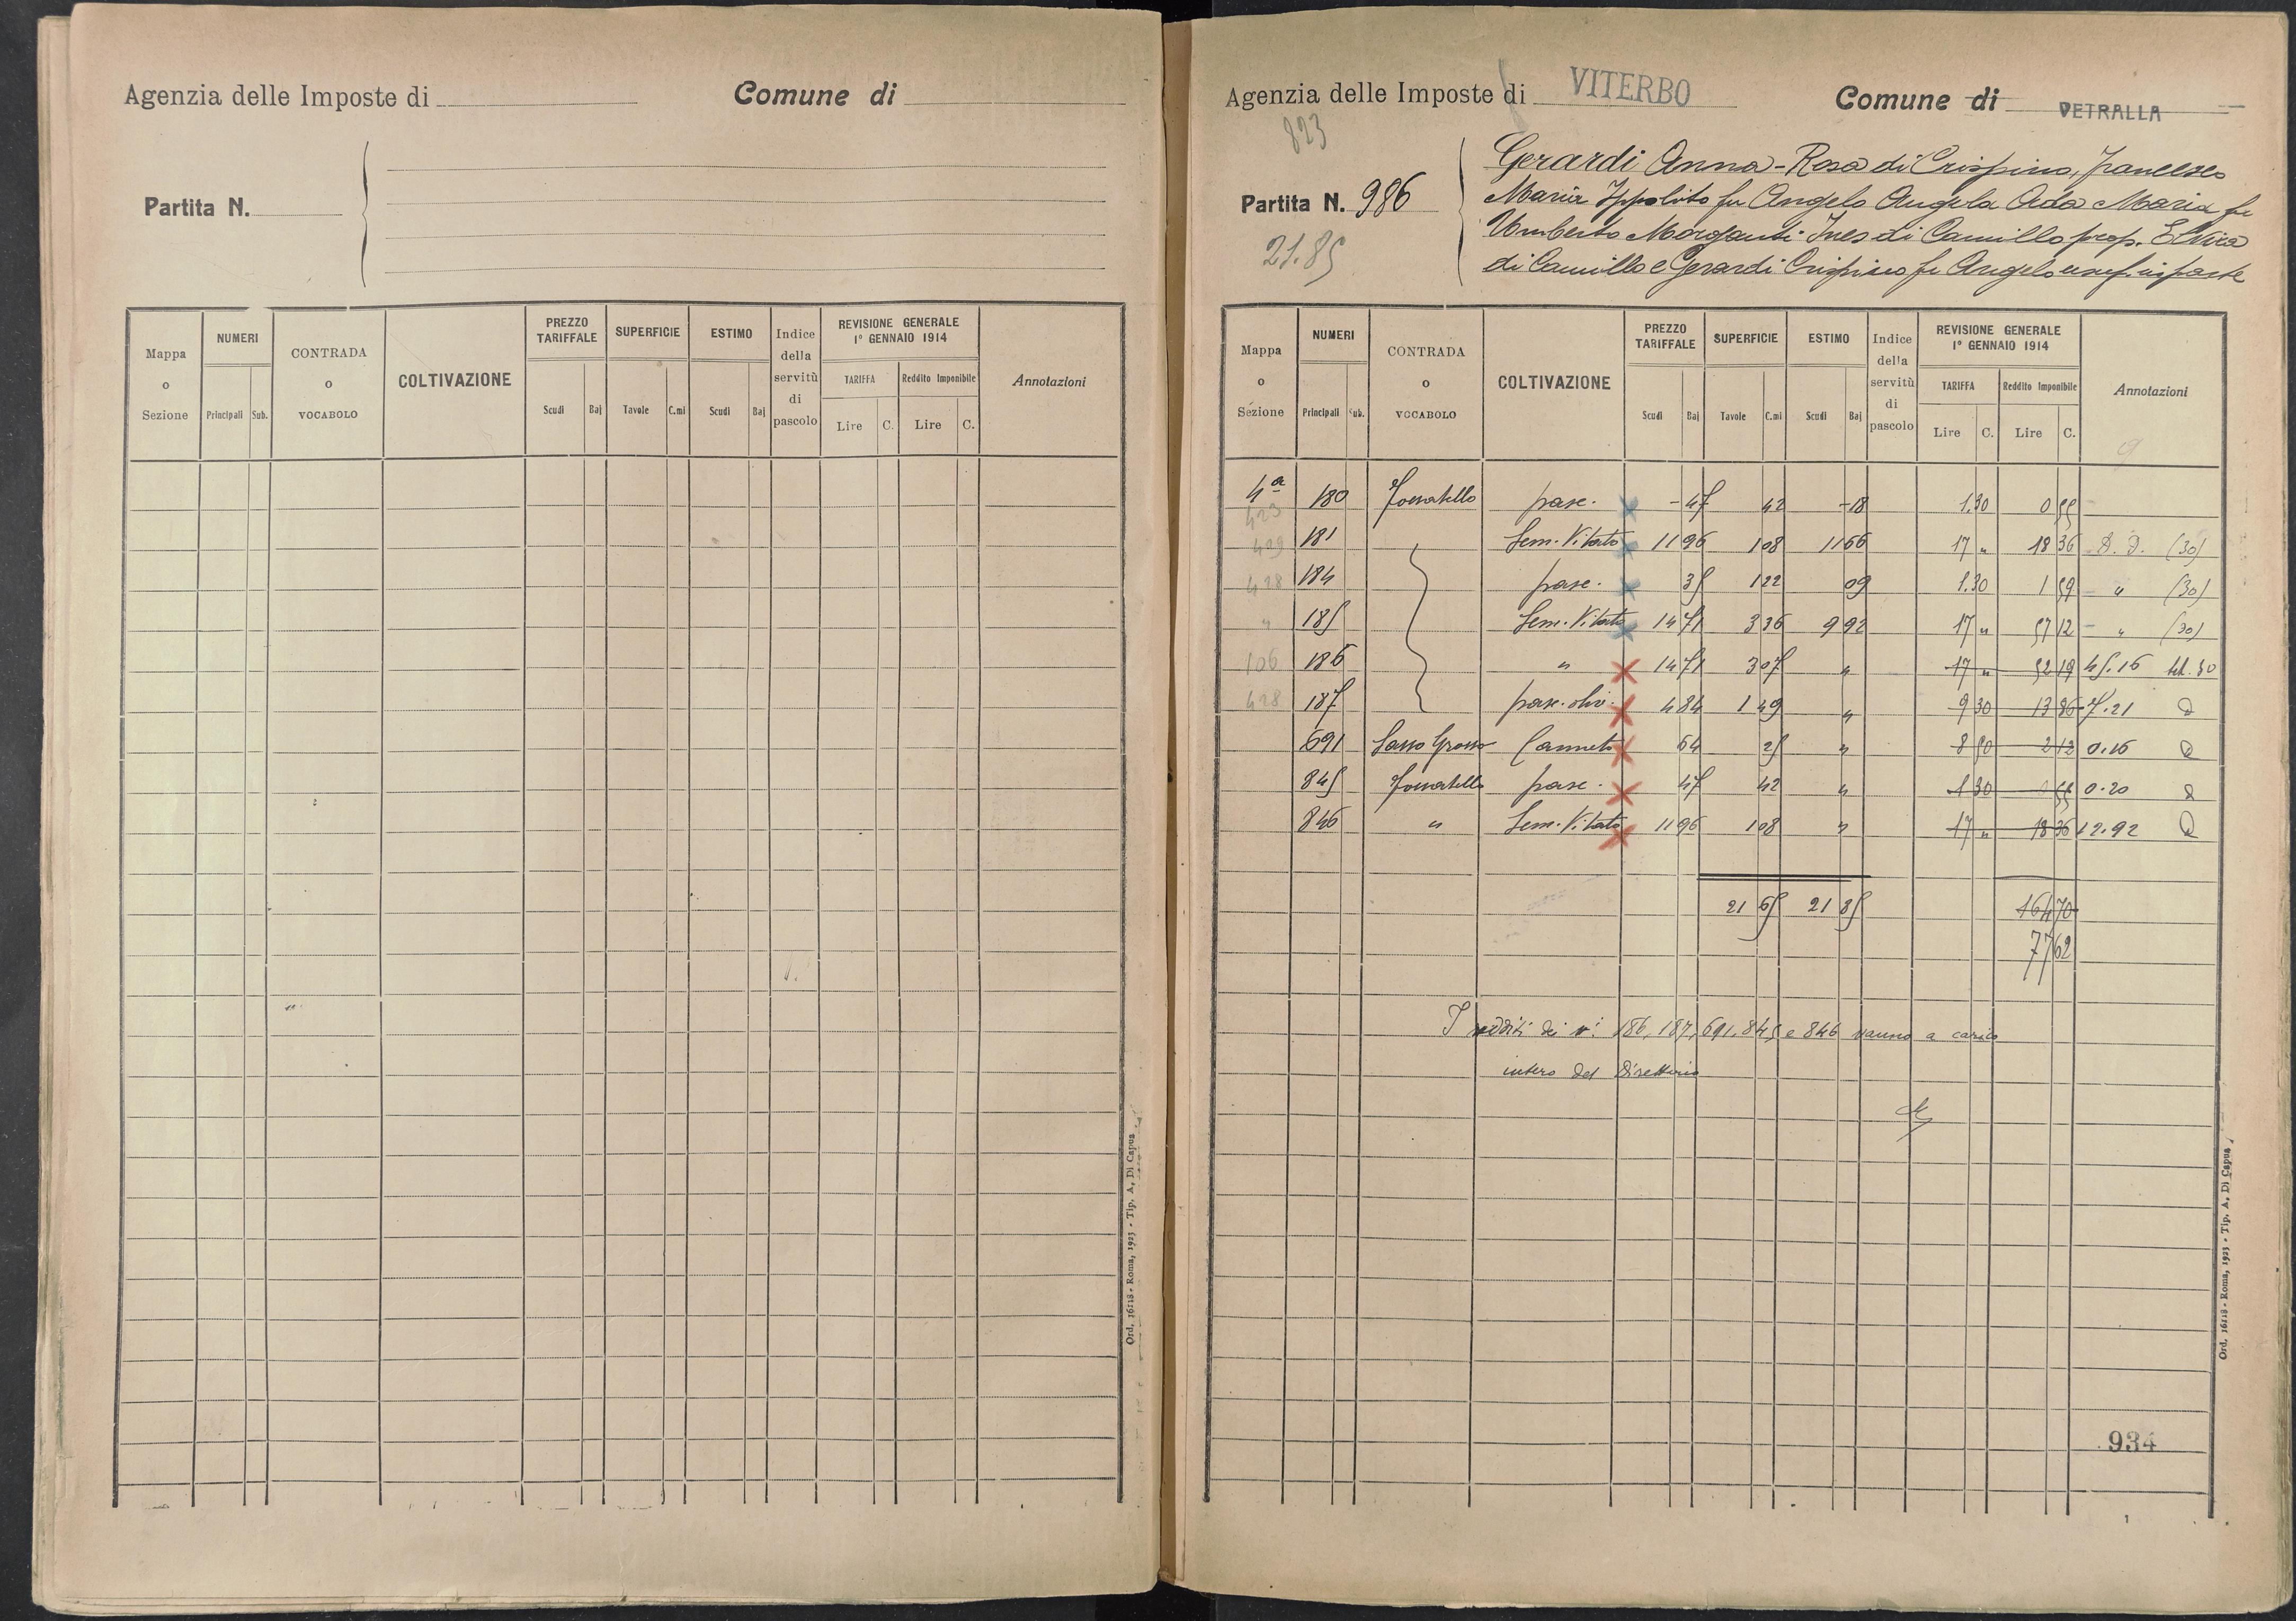 Agenzia delle Imposte di
Comune di
Partita N.
Mappa o Sezione
NUMERI
Principali Sub.
CONTRADA o VOCABOLO
COLTIVAZIONE
PREZZO TARIFFALE
Scudi Baj
SUPERFICIE
Tavole C.mi
ESTIMO
Scudi Baj
Indice della servitù di pascolo
REVISIONE GENERALE
1° GENNAIO 1914
TARIFFA Reddito Imponibile
Lire C. Lire C.
Annotazioni
Ord. 16118 - Roma, 1923 - Tip. A. Di Capua
Agenzia delle Imposte di VITERBO
Comune di VETRALLA
823
Partita N. 986
21.85
Gerardi Anna-Rosa di Crispino, Francesco
Maria Ippolito fu Angelo Angela Ada Maria fu
Umberto Morganti Ines di Camillo prop. Elvira
di Camillo e Gerardi Crispino fu Angelo usuf. in parte
Mappa o Sezione
NUMERI
Principali Sub.
CONTRADA o VOCABOLO
COLTIVAZIONE
PREZZO TARIFFALE
Scudi Baj
SUPERFICIE
Tavole C.mi
ESTIMO
Scudi Baj
Indice della servitù di pascolo
REVISIONE GENERALE
1° GENNAIO 1914
TARIFFA Reddito Imponibile
Lire C. Lire C.
Annotazioni
4a 180 Fossatello pasc. - 47 42 - 18 1.30 0 55
423
429 181 Sem. Vitato 11 96 1 08 11 66 17 " 18 36 D. D. (30)
428 184 pasc. 35 1 22 09 1.30 1 59 " (30)
" 185 Sem. Vitato 14 71 3 36 9 92 17 " 57 12 " (30)
106 186 " 14 71 3 07 " 17 " 52 19 45.16
428 187 pasc. oliv. 4 84 1 49 " 9 30 13 86 7.21 D
691 Sasso Grosso Canneto 64 25 " 8 50 2 12 0.16 D
845 Fossatello pasc. 47 42 " 1 30 0 55 0.20 D
846 " Sem. Vitato 11 96 1 08 " 17 " 18 36 12.92 D
21 65 21 85 164 70
77 62
I redditi dei n.i 186, 187, 691, 845 e 846 vanno a carico
intero del Direttario
934
Ord. 16118 - Roma, 1923 - Tip. A. Di Capua